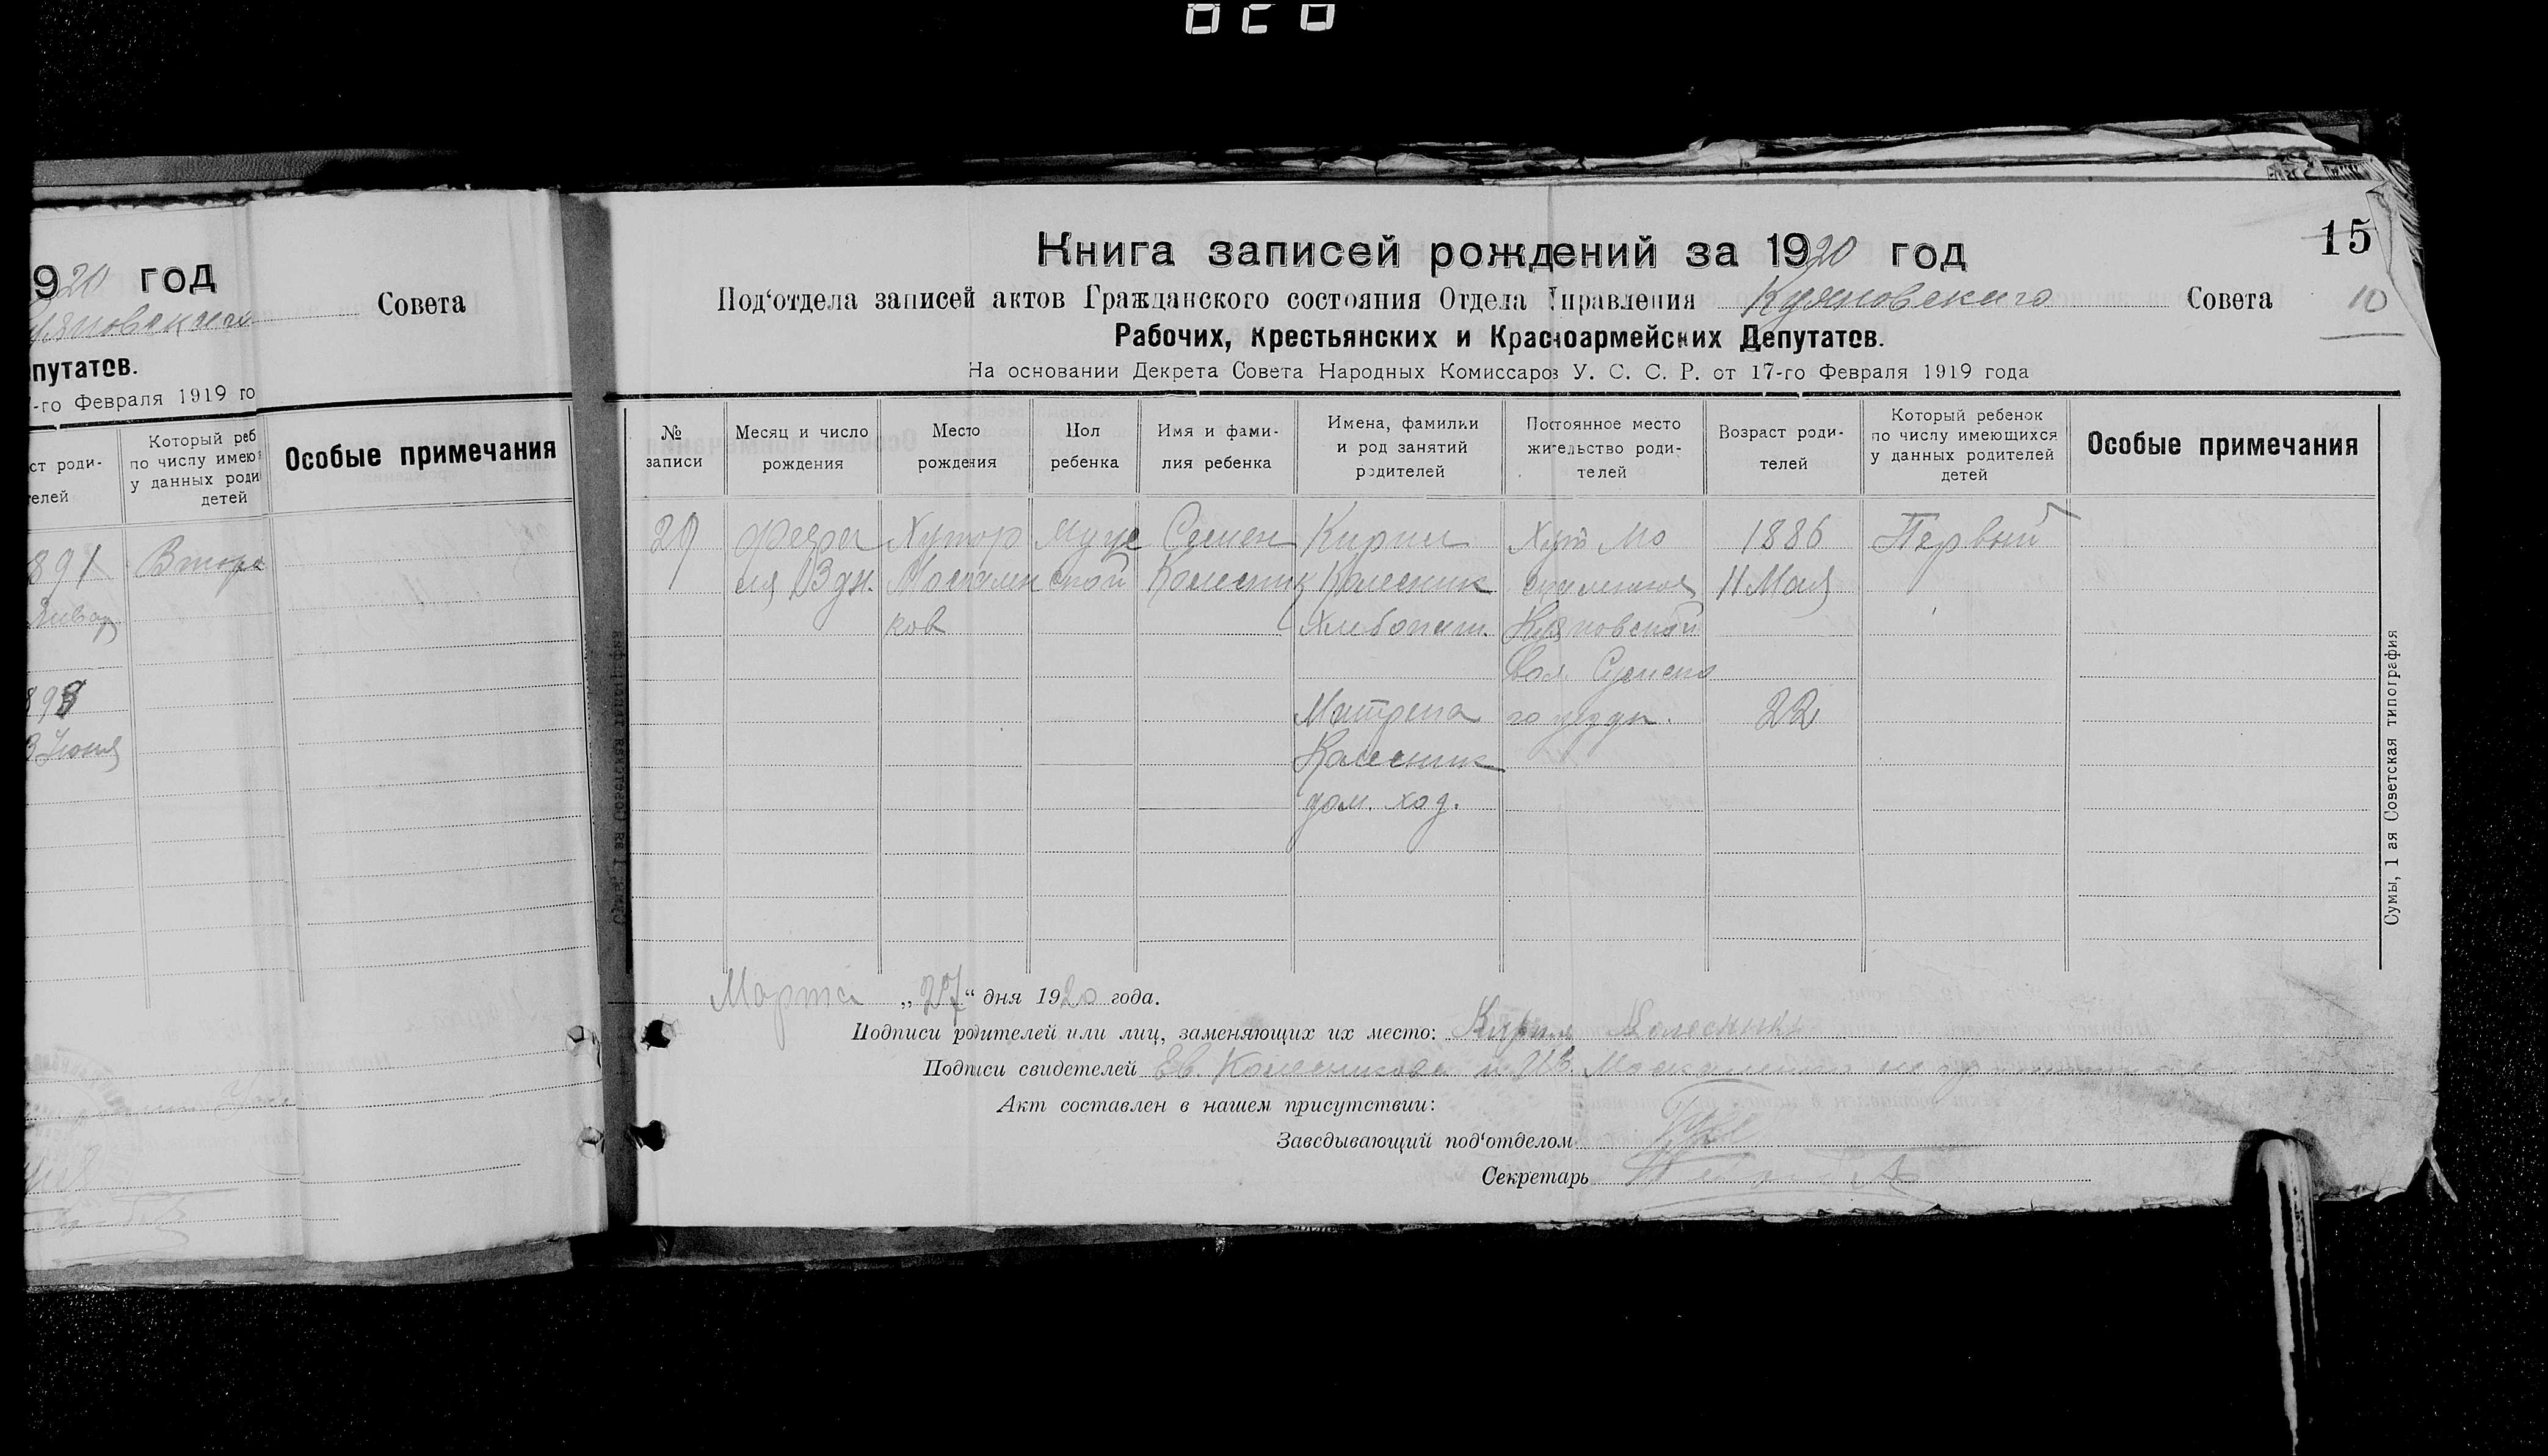 920 год
Совета
путатов.
-го Февраля 1919 го
ст роди-
телей
Который реб
по числу имею
у данных роди
детей
Особые примечания
891 Второ
Январ
898
3 Июня
15
10
Книга записей рождений за 1920 год
Под‘отдела записей актов Гражданского состояния Отдела Управления Куяновского Совета
Рабочих, Крестьянских и Красноармейских Депутатов.
На основании Декрета Совета Народных Комиссаров У. С. С. Р. от 17-го Февраля 1919 года
№
записи
Месяц и число
рождения
Место
рождения
Пол
ребенка
Имя и фами-
лия ребенка
Имена, фамилии
и род занятий
родителей
Постоянное место
жительство роди-
телей
Возраст роди-
телей
Который ребенок
по числу имеющихся
у данных родителей
детей
Особые примечания
29
Февра
ля 13 дн.
Хутор
Москален
ков
Муже
ской
Семен
Колесник
Кирил
Колесник
Хлебопаш.
Матрена
Колесник
дом. ход.
Хут Мо
скаленков
Куяновской
Вол. Сумско
го уезда.
1886
11 Мая
22
Первый
Марта „27“ дня 1920 года.
Подписи родителей или лиц, заменяющих их место: Кирил Колесник
Подписи свидетелей Ев. Колесникова и Ив.
Акт составлен в нашем присутствии:
Заведывающий под‘отделом
Секретарь
Сумы, 1 ая Советская типография